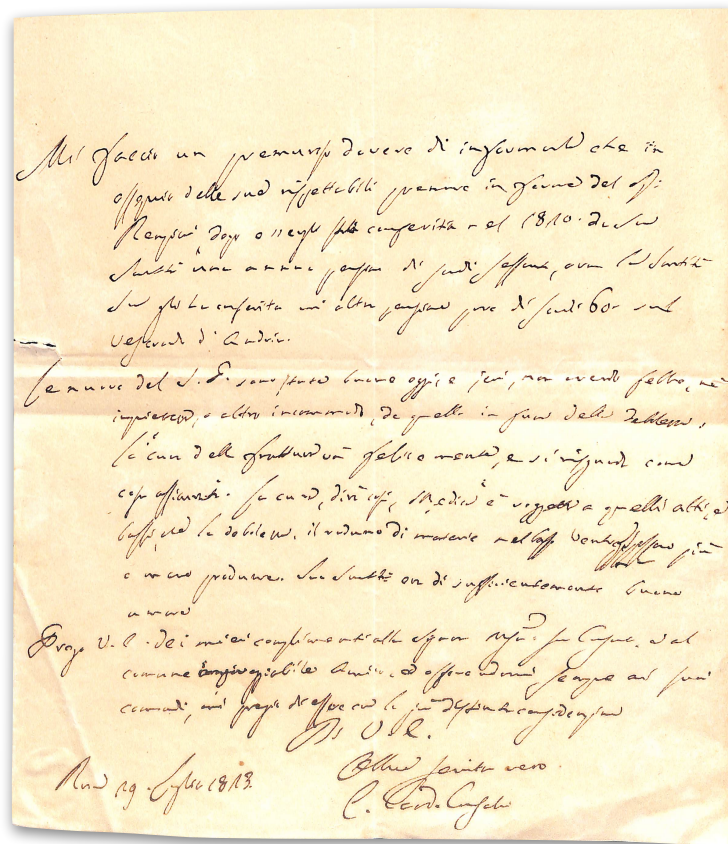 Mi faccio un premuroso dovere di informarla che in
ossequio delle sue rispettabili premure in favore del
dopo conferita nel 1810 da Sua
Santità una annua pensione di scudi sessanta, ora la Santità
Sua gli ha conferita un altra pensione pure di scudi 60 sul
Vescovado di
Le nuove del S. P. sono state buone oggi, e jeri, non avendo febbre, nè
o altro incomodo, da quello in fuori della debolezza.
La cura della frattura và felicemente, e si risguarda come
cosa La cura, dirò così, Medica è soggetta a quelli alti, e
bassi, che la debolezza, il di materie nel basso ventre possono più
o meno produrre. Sua Santità è di sufficientemente buono
umore
Prego V. E. dei miei complimenti alla Signora sua ed al
comune Amico, ed offerendomi sempre ai suoi
comandi, mi pregio di essere con la più distinta considerazione
Di V. E.
servitor vero
Roma 19 Luglio 1823
C. Card.